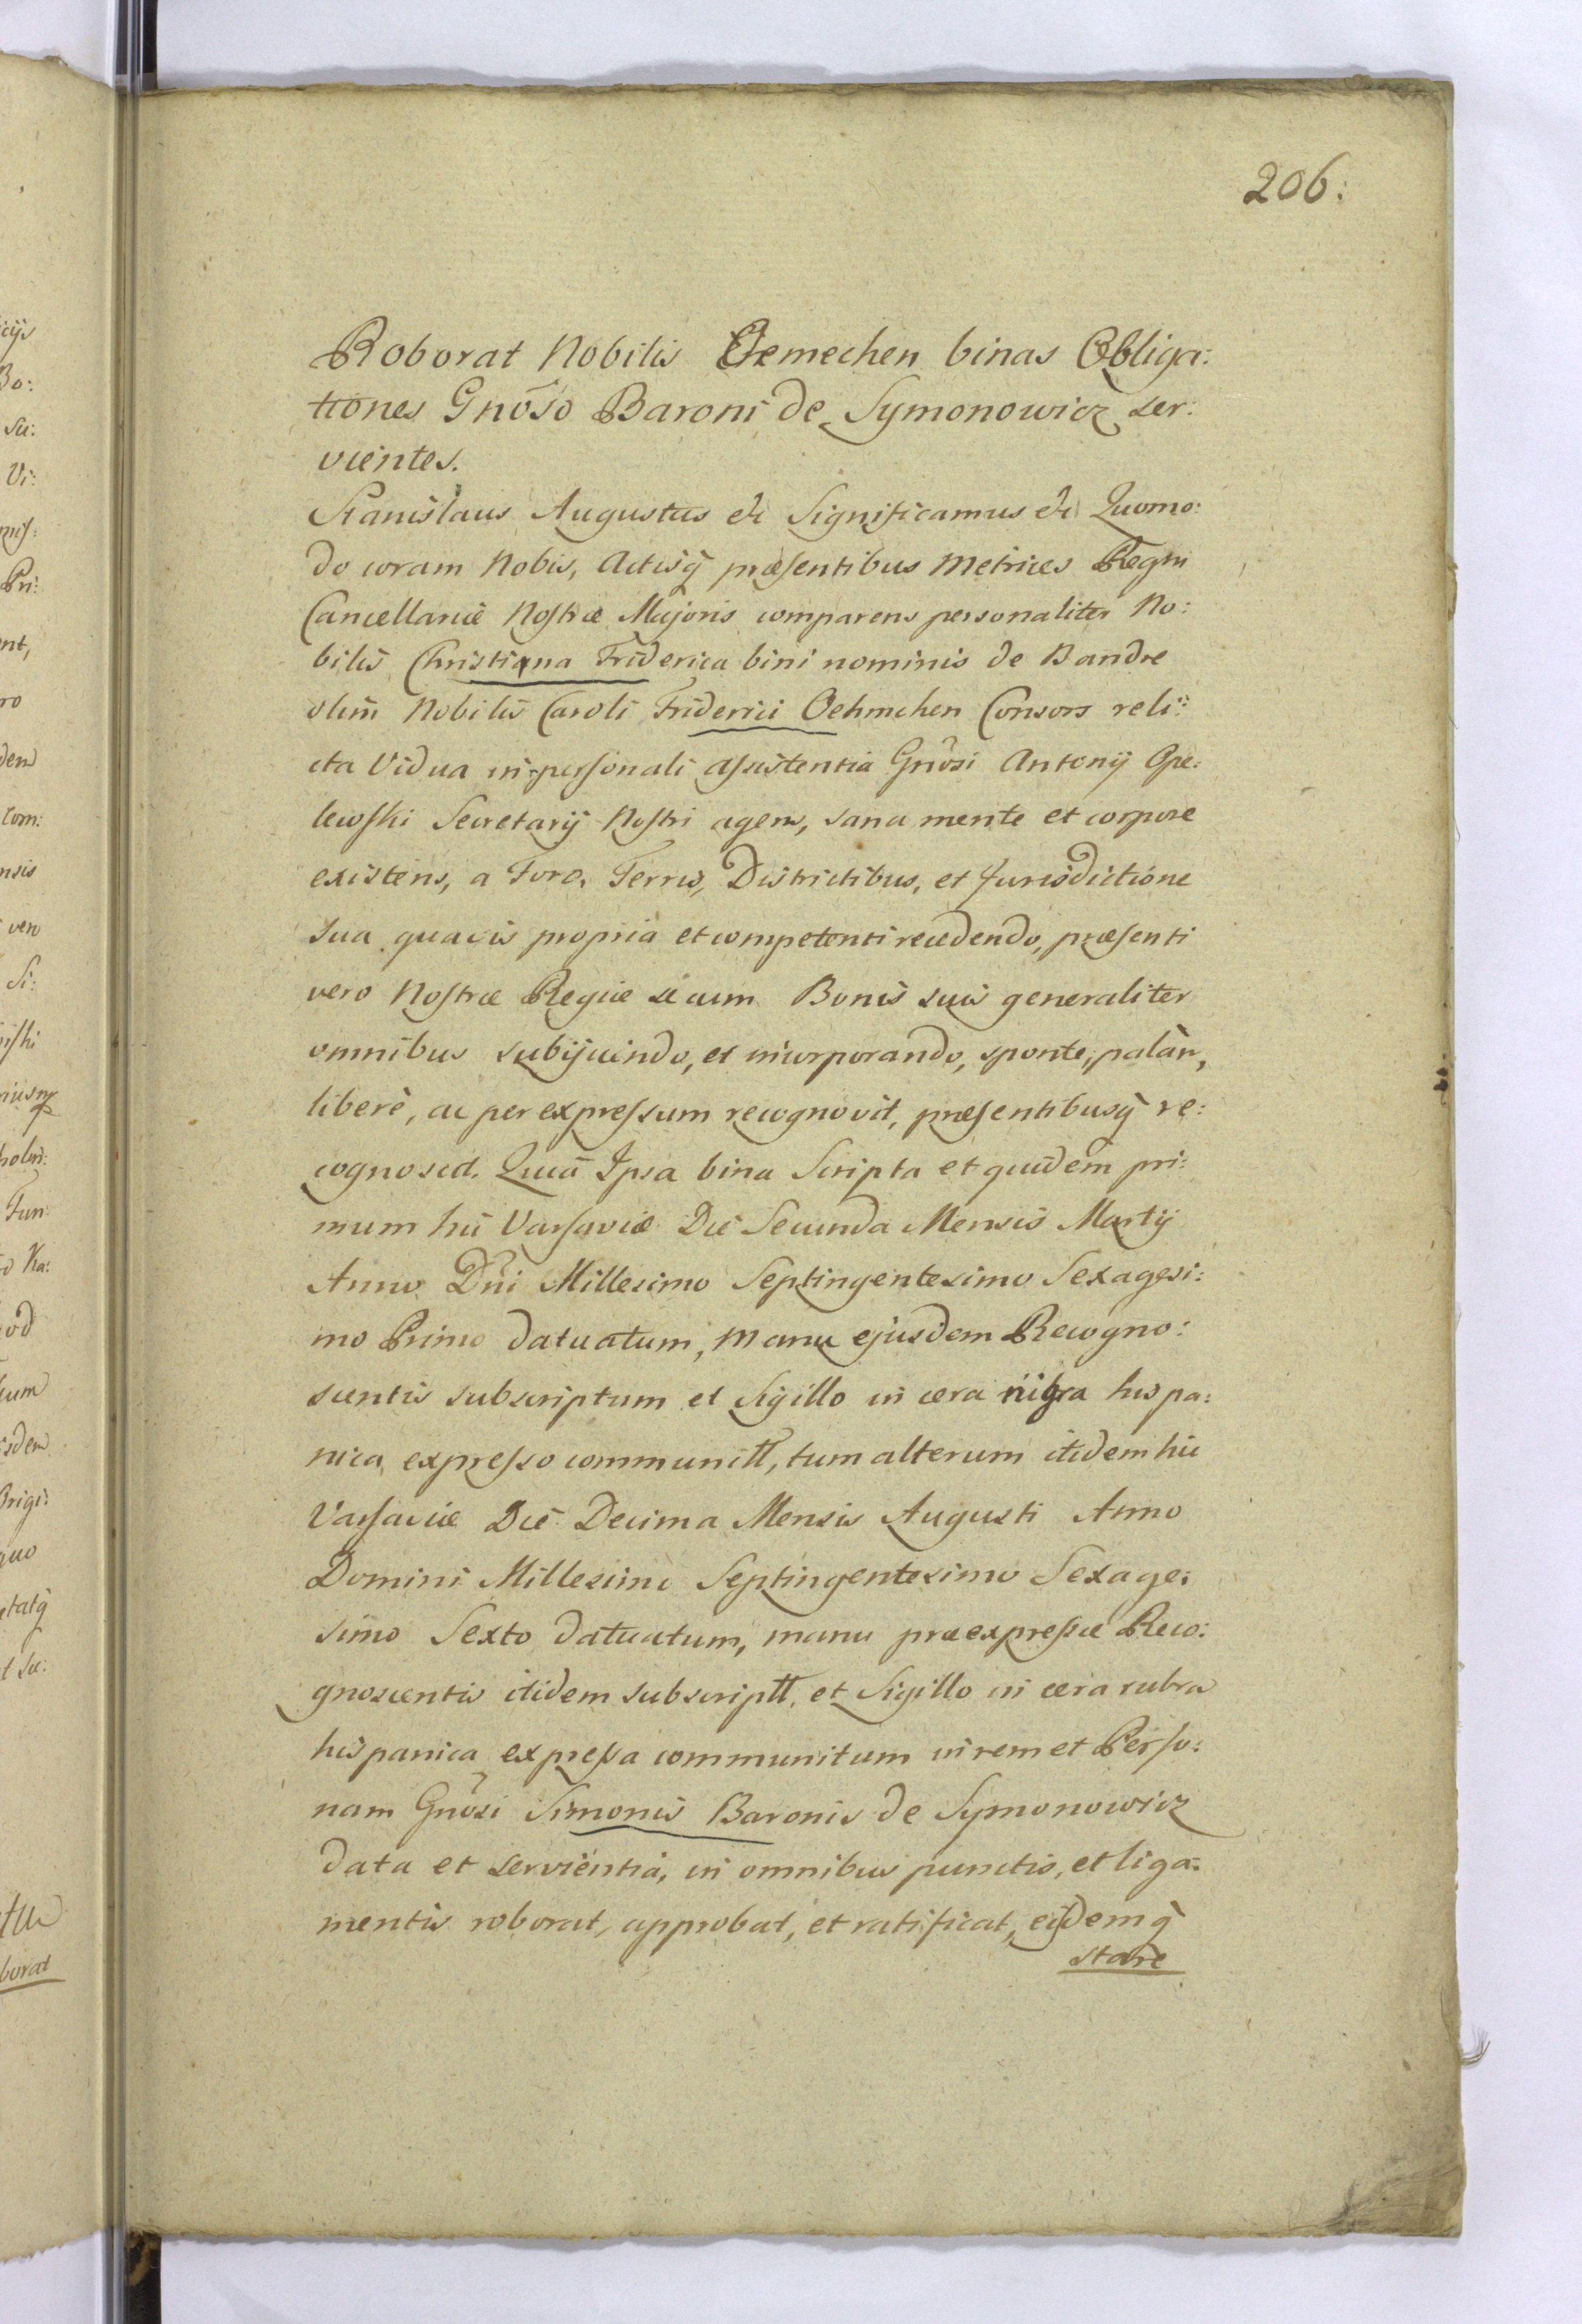 206:
Roborat Nobilis Oemechen binas Obliga:
tiones Gnõso Baroni de Symonowicz ser:
vientes.
Stanislaus Augustus etc Significamus etc Quomo:
do coram Nobis, Actisq̃ præsentibus Metrices Regni
Cancellariæ Nostræ Majoris comparens personaliter No:
bilis Christiana Friderica bini nominis de Bandre
olim Nobilis Caroli Friderici Oehmchen Consors reli:
cta Vidua in personali assistentia Gnõsi Antonij Ope:
lewski Secretarij Nostri agens, sana mente et corpore
existens, a Foro, Terris, Districtibus, et Jurisdictione
sua quavis propria et competenti recedendo, præsenti
vero Nostræ Regiæ se cum Bonis suis generaliter
omnibus subijciendo, et incorporando, sponte, palàm,
liberè, ac per expressum recognovit, præsentibusq̃ re:
cognoscit. Quia Ipsa bina Scripta et quidem pri:
mum hic Varsaviæ Die Secunda Mensis Martij
Anno Dñi Millesimo Septingentesimo Sexagesi:
mo Primo datuatum, manu ejusdem Recogno:
scentis subscriptum et Sigillo in cera nigra hispa:
nica expresso communitt, tum alterum itidem hic
Varsaviæ Die Decima Mensis Augusti Anno
Domini Millesimo Septingentesimo Sexage:
simo Sexto datuatum, manu præexpressæ Reco:
gnoscentis itidem subscriptt, et Sigillo in cera rubra
hispanica expressa communitum in rem et Perso:
nam Gnõsi Simonis Baronis de Symonowicz
data et servientia, in omnibus punctis, et liga:
mentis roborat, approbat, et ratificat, eisdemq̃
stare